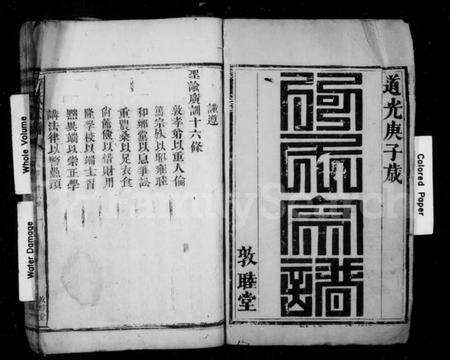 道光庚子歲
宗譜
敦睦堂
謹遵
聖諭廣訓十六條
敦孝弟以重人倫
篤宗族以昭雍睦
和鄉黨以息爭訟
重農桑以足衣食
尚節儉以惜財用
隆學校以端士習
黜異端以崇正學
講法律以儆愚頑
Colored Paper
Whole Volume
Water Damage